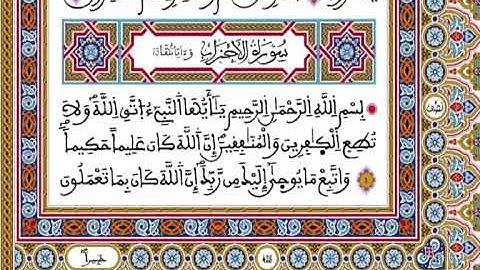 سورة الأحزاب
بسم الله الرحمن الرحيم يا أيها النبيء اتق الله ولا
تطع الكافرين والمنافقين إن الله كان عليما حكيما
واتبع ما يوحى إليك من ربك إن الله كان بما تعملون
خبيرا